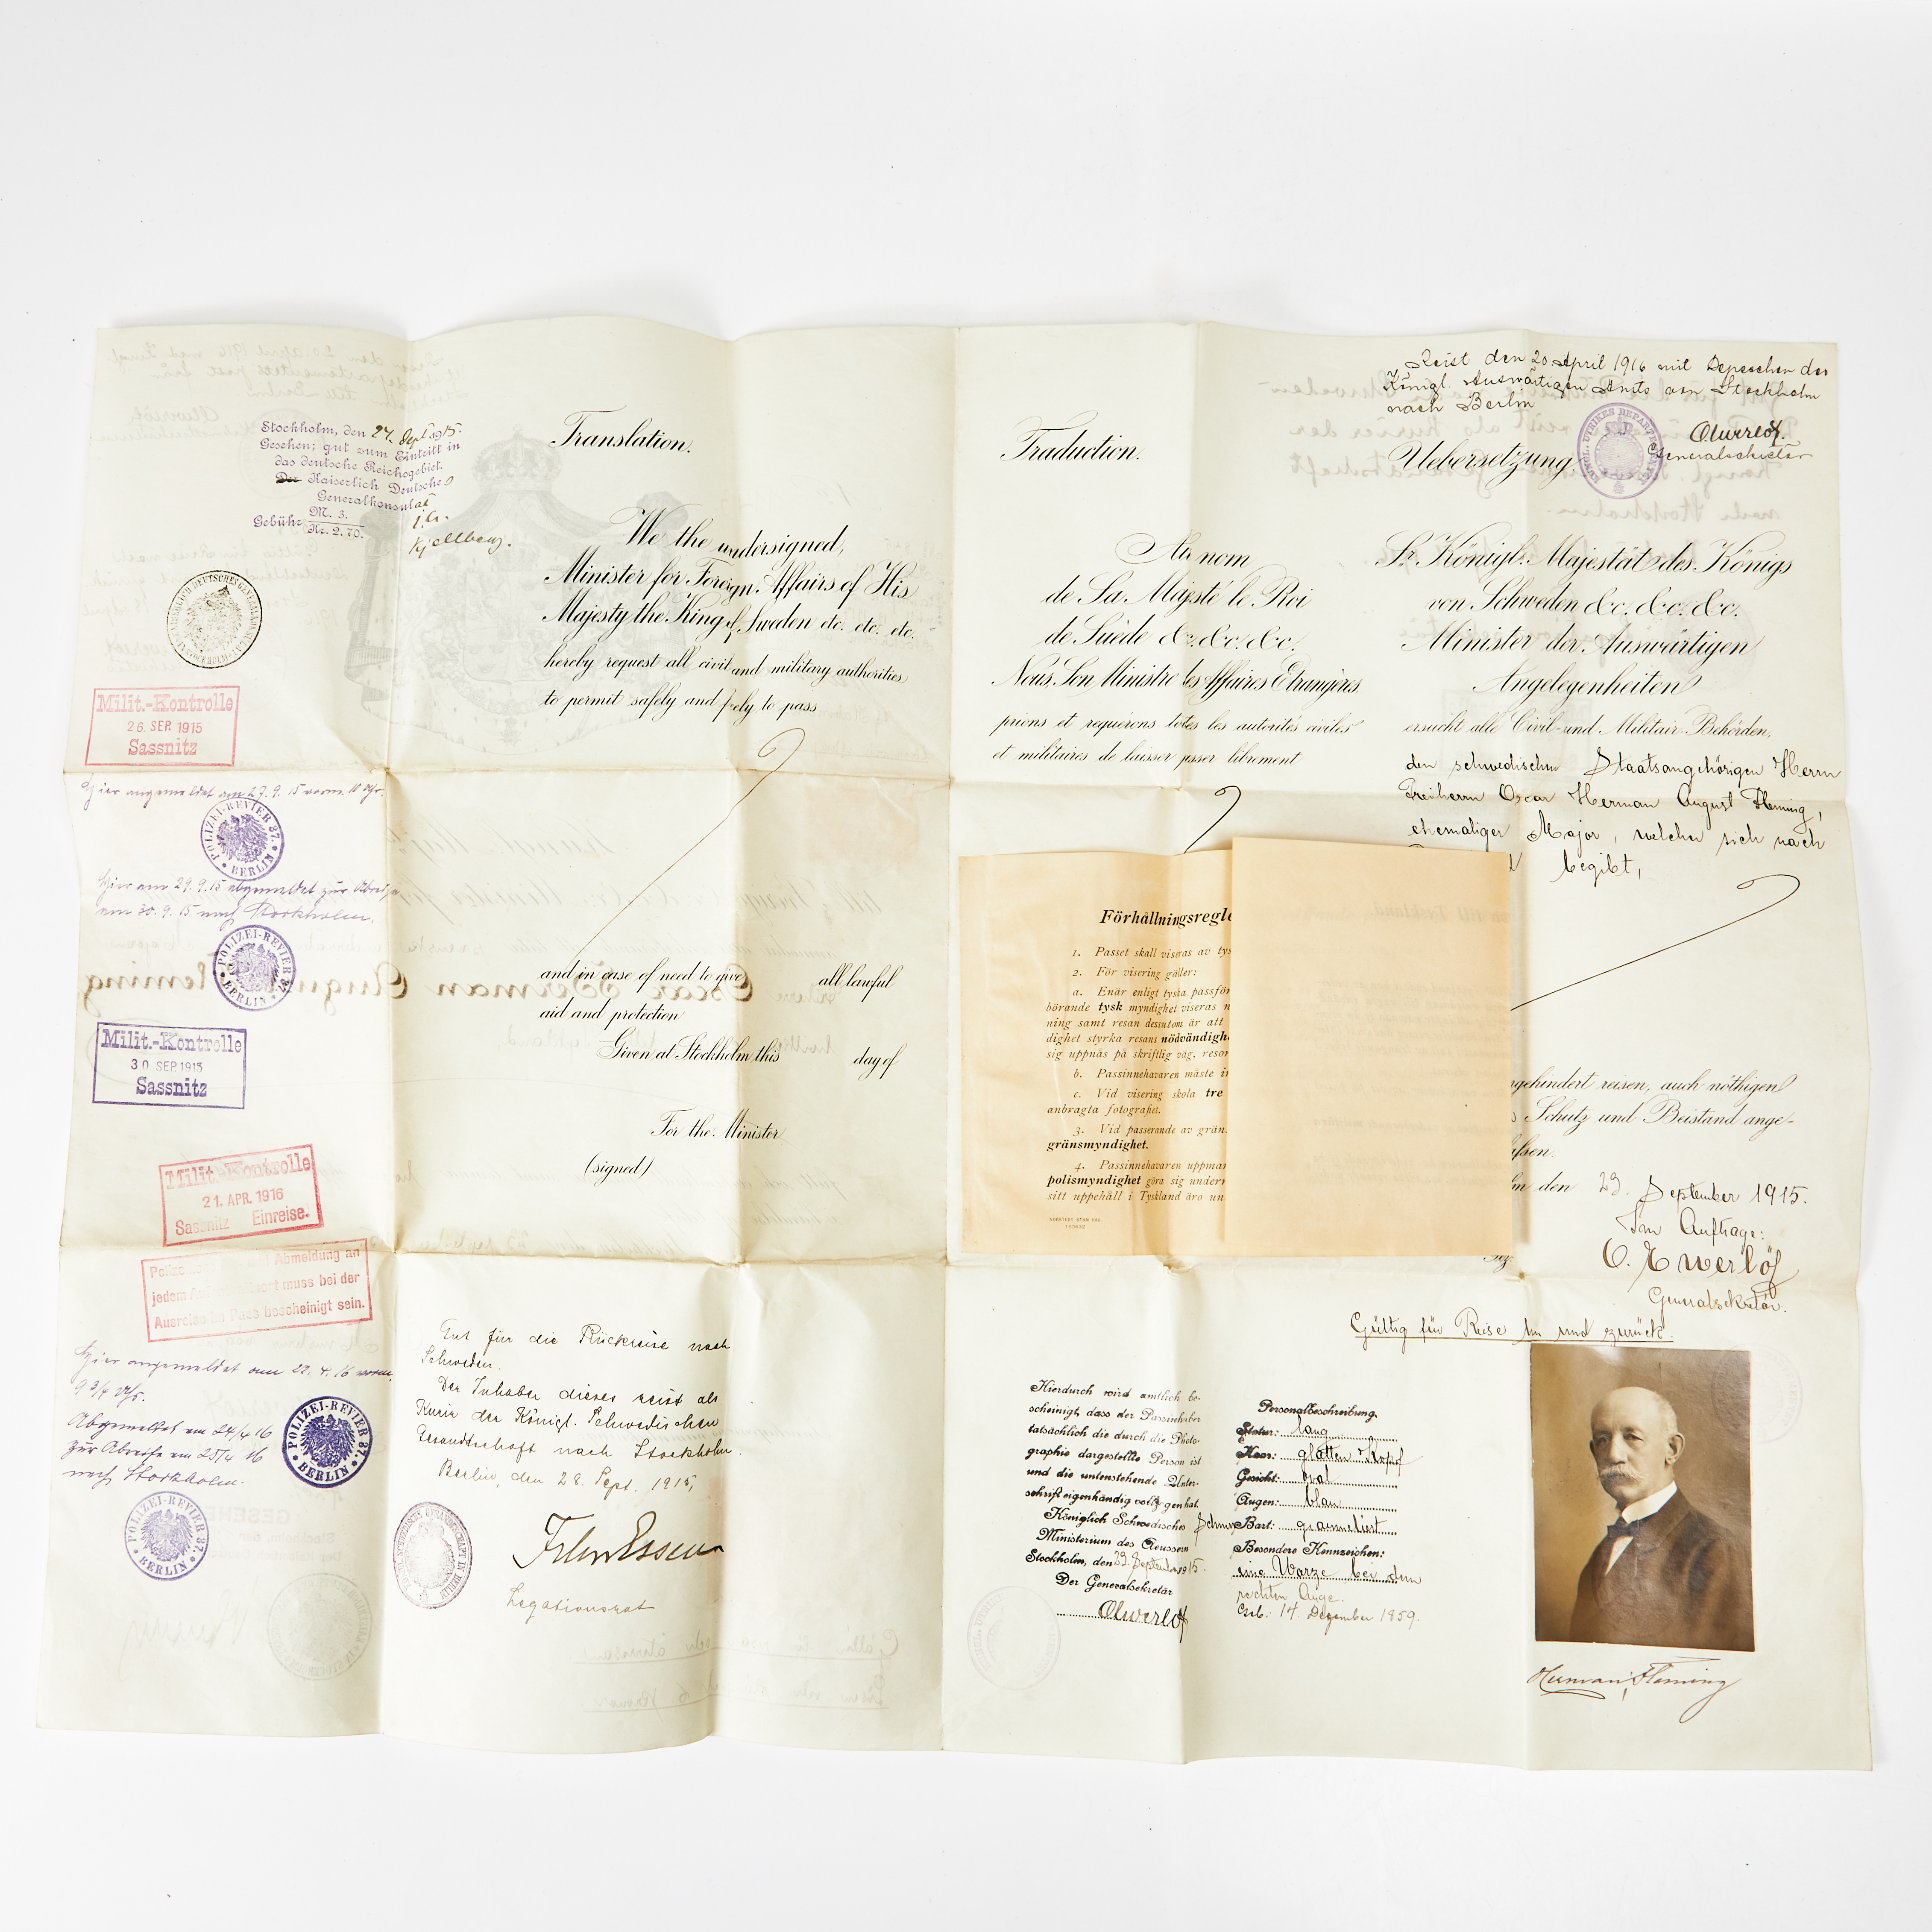 Stockholm, den 24. Sept. 1915.
Gesehen; gut zum Eintritt in
das deutsche Reichsgebiet.
Der Kaiserlich Deutsche
Generalkonsulat
Gebühr M. 3.
Kr. 2.70.
Milit.-Kontrolle
26. SEP. 1915
Sassnitz
Hier angemeldet am 27. 9. 15 vorm. 11 Uhr.
POLIZEI-REVIER 87. BERLIN
Hier am 29. 9. 15 abgemeldet zur Abreise
am 30. 9. 15 nach Stockholm.
POLIZEI-REVIER 87. BERLIN
Milit.-Kontrolle
30. SEP. 1915
Sassnitz
Milit.-Kontrolle
21. APR. 1916
Sassnitz Einreise.
Abmeldung an
jedem muss bei der
Ausreise im Pass bescheinigt sein.
Hier angemeldet am 22. 4. 16 vorm.
9 3/4 Uhr.
Abgemeldet am 24/4 16
zur Abreise am 25/4 16
nach Stockholm.
POLIZEI-REVIER 87. BERLIN
POLIZEI-REVIER 87. BERLIN
Translation.
We the undersigned,
Minister for Foreign Affairs of His
Majesty the King of Sweden etc. etc. etc.
hereby request all civil and military authorities
to permit safely and freely to pass
and in case of need to give all lawful
aid and protection
Given at Stockholm this day of
For the Minister
(signed)
Gut für die Rückreise nach
Schweden.
Der Inhaber dieses reist als
Kurir der Königl. Schwedischen
Gesandtschaft nach Stockholm.
Berlin, den 28. Sept. 1915,
Legationsrat
Traduction.
Au nom
de Sa Majesté le Roi
de Suède &c. &c. &c.
Nous, Son Ministre des Affaires Etrangères
prions et requérons toutes les autorités civiles
et militaires de laisser passer librement
Förhållningsregle
1. Passet skall viseras av tys
2. För visering gäller:
a. Enär enligt tyska passför
börande tysk myndighet viseras
ning samt resan dessutom är att
dighet styrka resans nödvändigh
sig uppnås på skriftlig väg, resor
b. Passinnehavaren måste i
c. Vid visering skola tre
anbragta fotografiet.
3. Vid passerande av grän
gränsmyndighet.
4. Passinnehavaren uppma
polismyndighet göra sig underr
sitt uppehåll i Tyskland äro un
Reist den 20. April 1916 mit Depeschen des
Königl. Auswärtigen Amts von Stockholm
nach Berlin
OEwerlöf.
Generalsekretär
Uebersetzung.
Sr. Königl. Majestät des Königs
von Schweden &c. &c. &c.
Minister der Auswärtigen
Angelegenheiten
ersucht alle Civil- und Militair-Behörden,
den schwedischen Staatsangehörigen Herrn
Freiherrn Oscar Herman August Fleming,
ehemaliger Major, welcher sich nach
begibt,
ngehindert reisen, auch nöthigen
Schutz und Beistand ange-
den 23. September 1915.
Im Auftrage:
O. Ewerlöf
Generalsekretär.
Gültig für Reise hin und zurück.
Hierdurch wird amtlich be-
scheinigt, dass der Passinhaber
tatsächlich die durch die Photo-
graphie dargestellte Person ist
und die untenstehende Unter-
schrift eigenhändig vollzogen hat.
Königlich Schwedisches
Ministerium des Aeussern
Stockholm, den 23. September 1915.
Der Generalsekretär
OEwerlöf
Personalbeschreibung.
Statur: lang
Haar: glatten Kopf
Gesicht: oval
Augen: blau
Bart: graumeliert
Besondere Kennzeichen:
eine Warze bei dem
rechten Auge.
Geb.: 14 Dezember 1859.
Herman Fleming